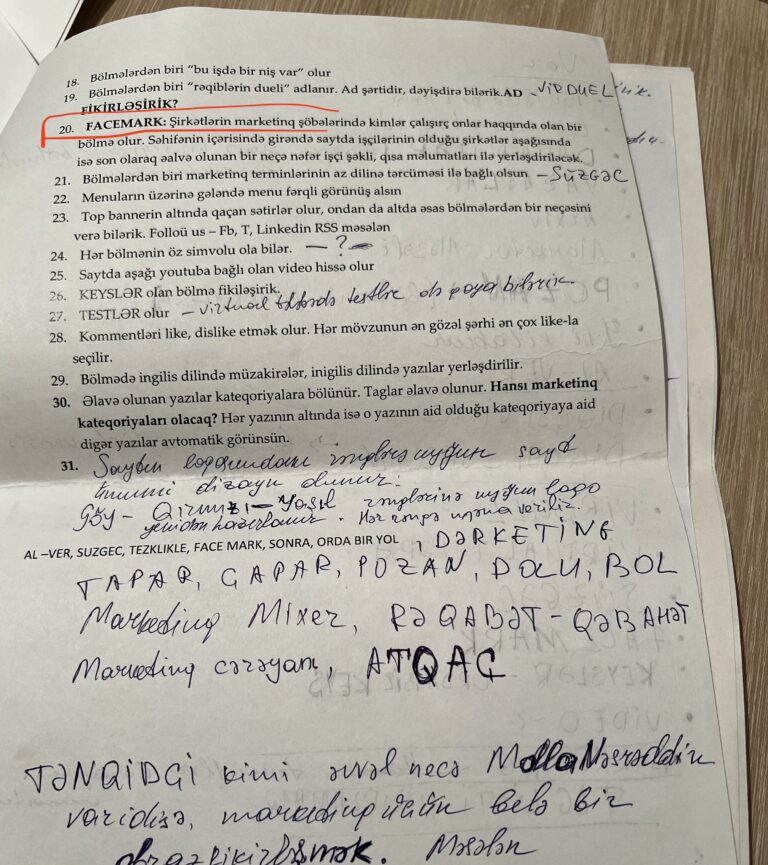 18. Bölmələrdən biri “bu işdə bir niş var” olur
19. Bölmələrdən biri “rəqiblərin dueli” adlanır. Ad şərtidir, dəyişdirə bilərik. AD
FİKİRLƏŞİRİK?
20. FACEMARK: Şirkətlərin marketinq şöbələrində kimlər çalışırç onlar haqqında olan bir
bölmə olur. Səhifənin içərisində girəndə saytda işçilərinin olduğu şirkətlər aşağısında
isə son olaraq əalvə olunan bir neçə nəfər işçi şəkli, qısa məlumatları ilə yerləşdiriləcək.
21. Bölmələrdən biri marketinq terminlərinin az dilinə tərcüməsi ilə bağlı olsun – SÜZGƏC
22. Menuların üzərinə gələndə menu fərqli görünüş alsın
23. Top bannerin altında qaçan sətirlər olur, ondan da altda əsas bölmələrdən bir neçəsini
verə bilərik. Folloü us – Fb, T, Linkedin RSS məsələn
24. Hər bölmənin öz simvolu ola bilər. — ? —
25. Saytda aşağı youtuba bağlı olan video hissə olur
26. KEYSLƏR olan bölmə fikiləşirik.
27. TESTLƏR olur – virtual testlər də bilərik.
28. Kommentləri like, dislike etmək olur. Hər mövzunun ən gözəl şərhi ən çox like-la
seçilir.
29. Bölmədə ingilis dilində müzakirələr, inigilis dilində yazılar yerləşdirilir.
30. Əlavə olunan yazılar kateqoriyalara bölünür. Taglar əlavə olunur. Hansı marketinq
kateqoriyaları olacaq? Hər yazının altında isə o yazının aid olduğu kateqoriyaya aid
digər yazılar avtomatik görünsün.
31. Saytın loqosundakı rənglərə uyğun sayt
ümumi dizayn olunur.
Göy – Qırmızı – Yaşıl rənglərinə uyğun loqo
yenidən hazırlanır. Hər rəngə məna verilir.
AL –VER, SUZGEC, TEZKLIKLE, FACE MARK, SONRA, ORDA BIR YOL , DƏRKETİNG
TAPAR, ÇAPAR, POZAN, DOLU, BOL
Marketinq Mixer, RƏQABƏT – QƏBAHƏT
Marketinq cərəyanı, ATQAÇ
TƏNQİDÇİ kimi əvvəl necə Molla Nəsrəddin
varidisə, marketinq üçün belə bir
obraz fikirləşmək. Məsələn